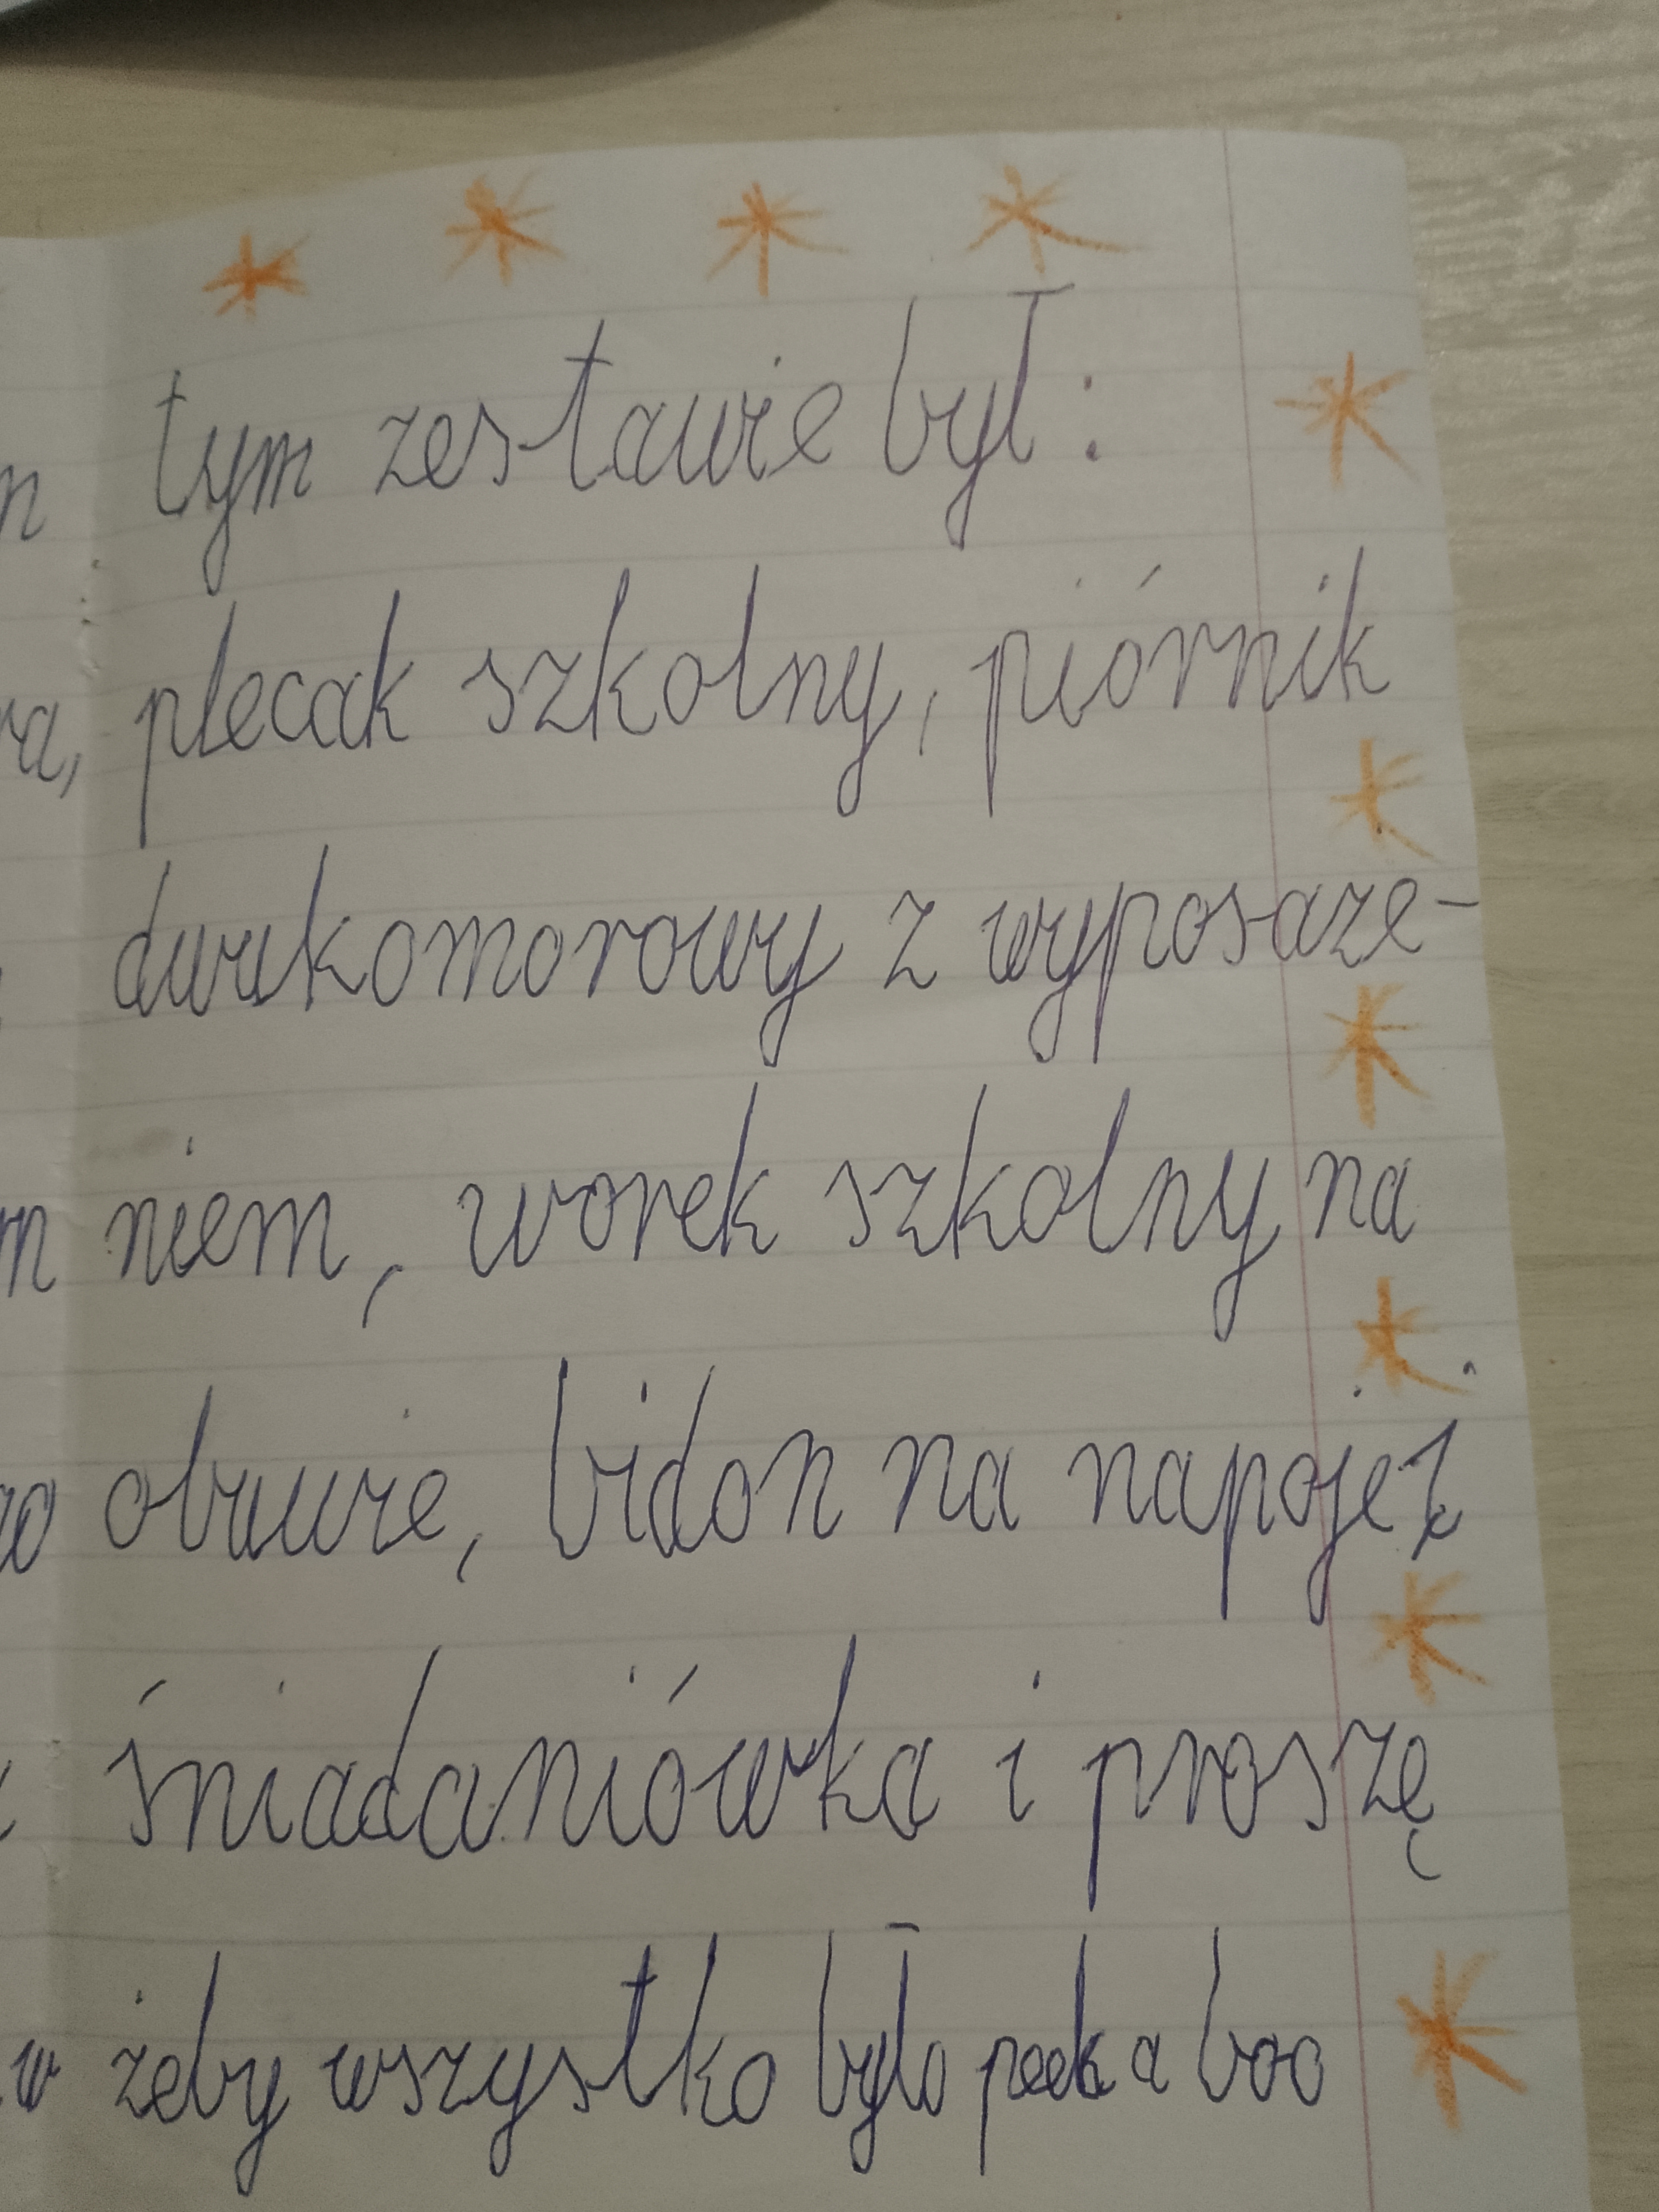 tym zestawie był:
plecak szkolny, piórnik
dwukomorowy z wyposaże-
niem, worek szkolny na
obuwie, bidon na napoje i
śniadaniówka i proszę
żeby wszystko było peek a boo